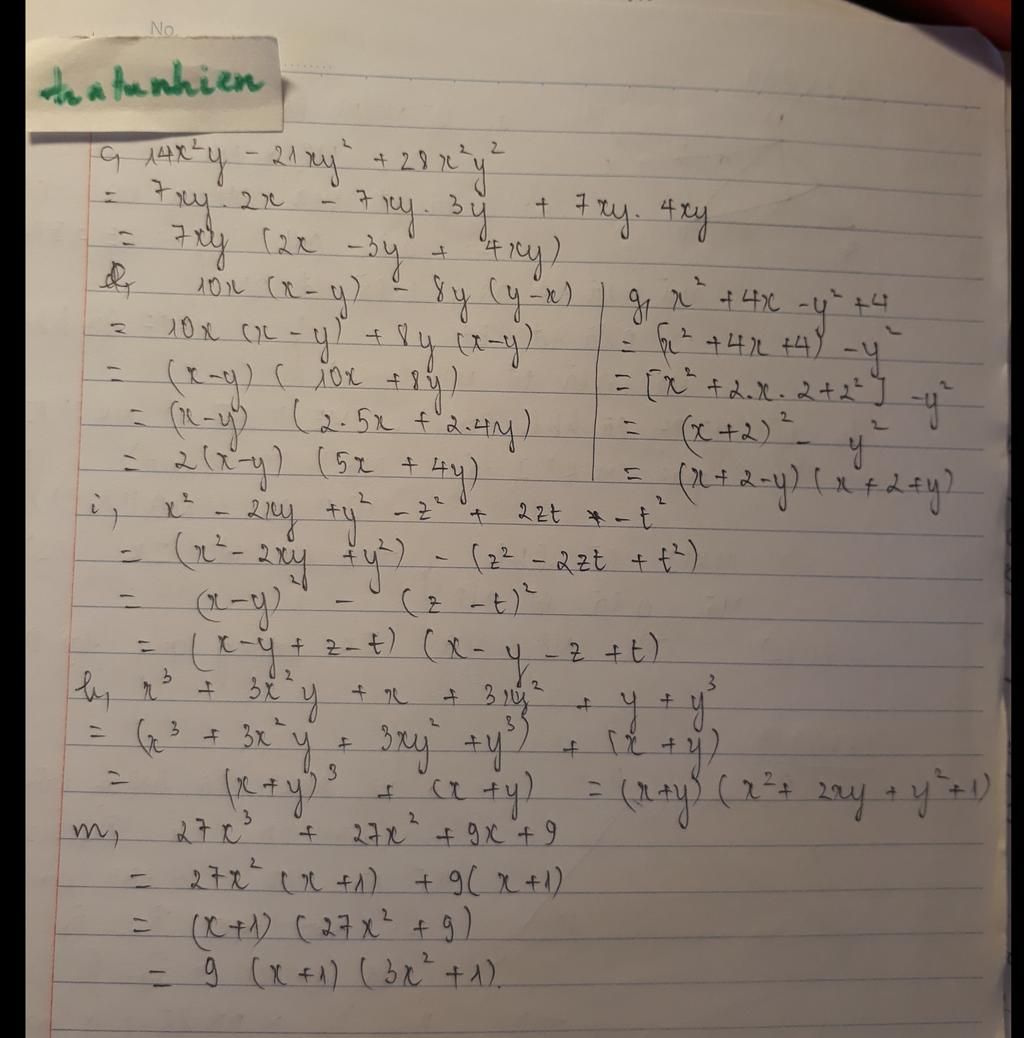 No
tratunhien
c, 14x²y - 21xy² + 28x²y²
= 7xy. 2x - 7xy. 3y + 7xy. 4xy
= 7xy (2x - 3y + 4xy)
d, 10x (x-y) - 8y (y-x)
= 10x (x-y) + 8y (x-y)
= (x-y) (10x + 8y)
= (x-y) (2.5x + 2.4y)
= 2(x-y) (5x + 4y)
g, x² + 4x - y² + 4
= (x² + 4x + 4) - y²
= [x² + 2.x.2 + 2²] - y²
= (x+2)² - y²
= (x+2-y) (x+2+y)
i, x² - 2xy + y² - z² + 2zt - t²
= (x² - 2xy + y²) - (z² - 2zt + t²)
= (x-y)² - (z-t)²
= (x-y + z-t) (x-y-z+t)
h, x³ + 3x²y + x + 3xy² + y + y³
= (x³ + 3x²y + 3xy² + y³) + (x+y)
= (x+y)³ + (x+y) = (x+y) (x² + 2xy + y² + 1)
m, 27x³ + 27x² + 9x + 9
= 27x² (x+1) + 9(x+1)
= (x+1) (27x² + 9)
= 9 (x+1) (3x² + 1).